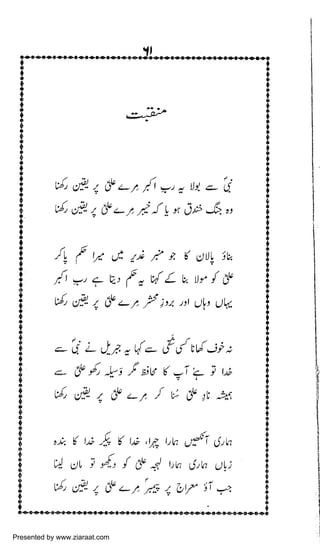 ۶۱
منقبت
نبیؐ سے بولا یہ رب اکبر مرے علیؑ پر یقین رکھنا
وہ جنگ خندق ہو یا کہ خیبر مرے علیؑ پر یقین رکھنا
بناؤ پالان کا جو منبر غدیر میں میرا حکم پا کر
علیؑ کو مولا بنا کے کہنا یہ حکم دیتا ہے رب اکبر
یہاں وہاں اور بروز محشر مرے علیؑ پر یقین رکھنا
نہ خوف کھانا کسی شقی سے کہا یہ جبریل نے نبیؐ سے
خدا تو ہے آپ کا محافظ مگر وسیلہ رکھو علیؑ سے
ہمیشہ ناد علیؑ سُنا کر مرے علیؑ پر یقین رکھنا
ہماری آنکھیں ہمارا چہرا، خدا کا پیکر خدا کا پردہ
زباں ہماری ہمارا لہجہ علیؑ کو دیکھو تو مان لینا
جب آؤ معراج پر پیمبرؐ مرے علیؑ پر یقین رکھنا
Presented by www.ziaraat.com